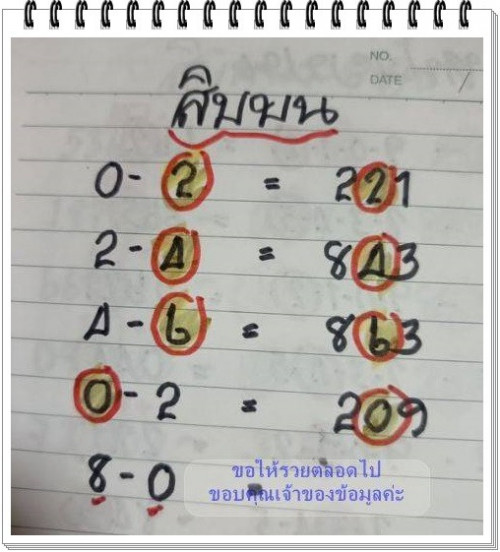 NO.
DATE
สิบบน
0 - 2 = 221
2 - 4 = 843
4 - 6 = 863
0 - 2 = 209
8 - 0 =
ขอให้รวยตลอดไป
ขอบคุณเจ้าของข้อมูลค่ะ